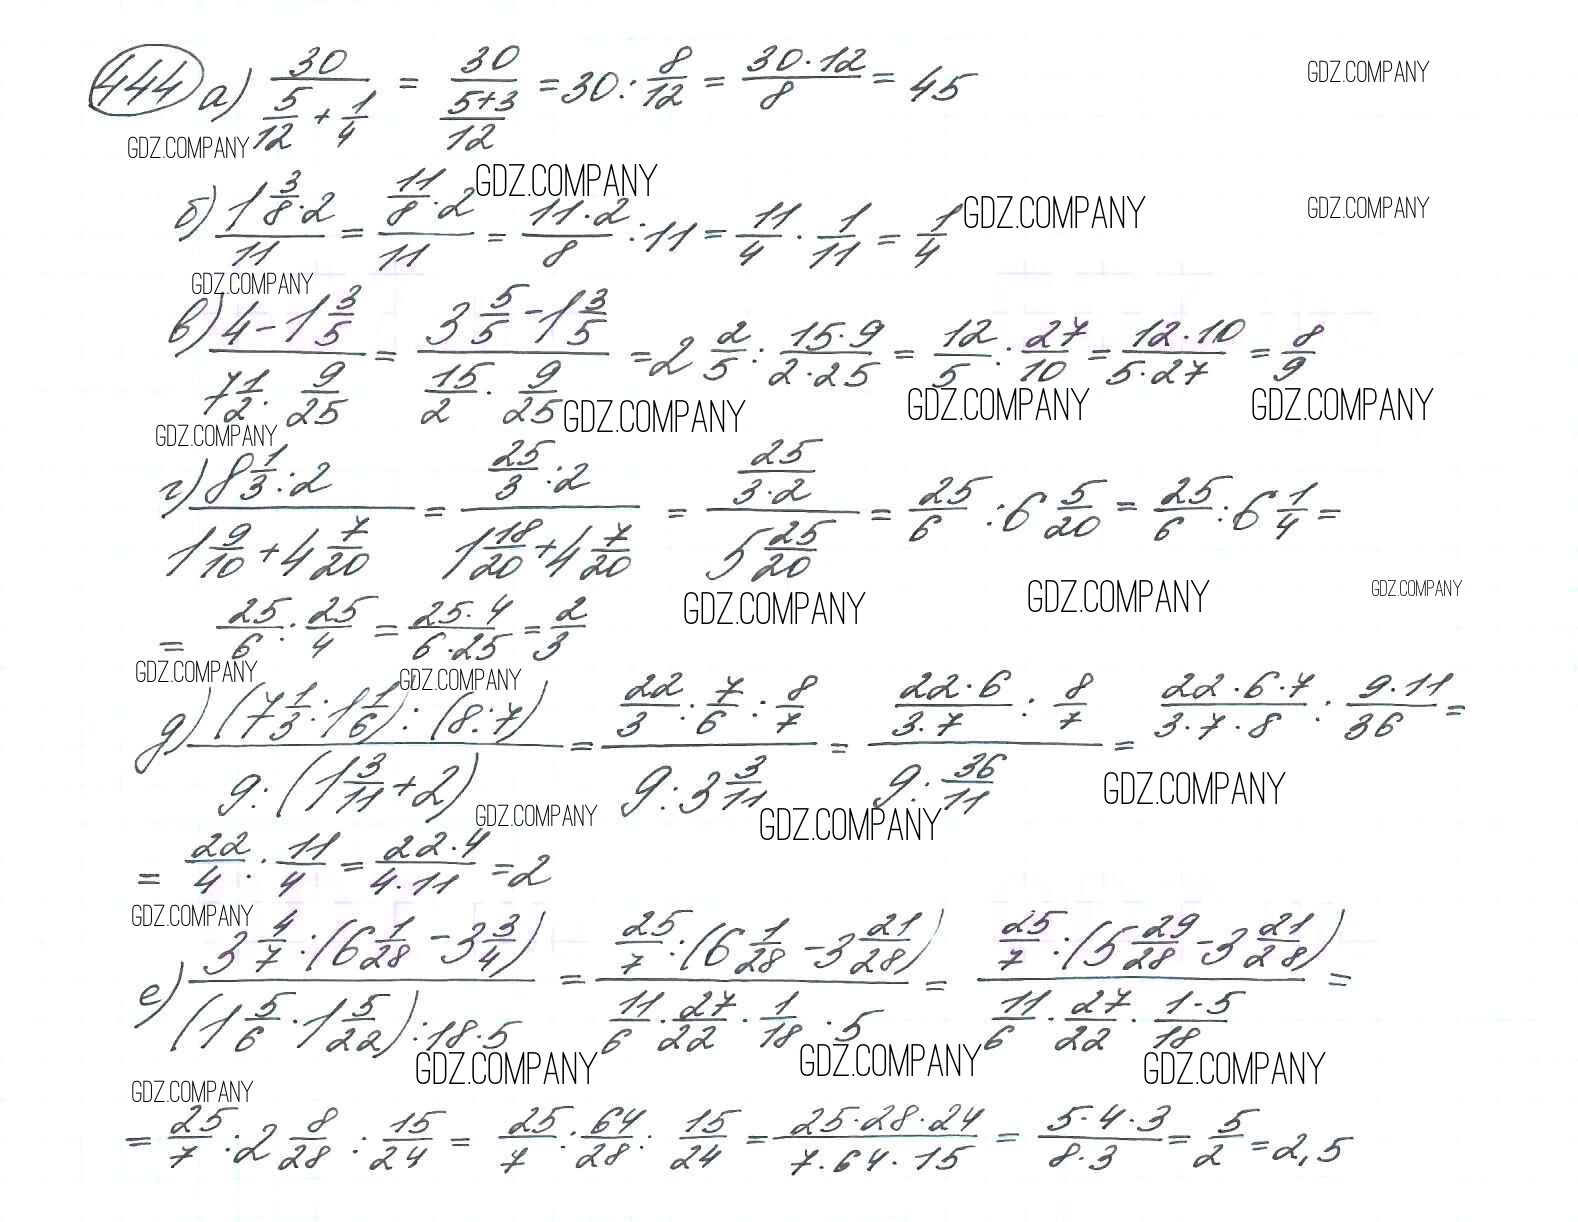 444 а) 30/(5/12 + 1/4) = 30/((5+3)/12) = 30 : 8/12 = (30·12)/8 = 45
GDZ.COMPANY
GDZ.COMPANY
б) (1 3/8 · 2)/11 = (11/8 · 2)/11 = (11·2)/8 : 11 = 11/4 · 1/11 = 1/4
GDZ.COMPANY GDZ.COMPANY GDZ.COMPANY
GDZ.COMPANY
в) (4 - 1 3/5)/(7 1/2 · 9/25) = (3 5/5 - 1 3/5)/(15/2 · 9/25) = 2 2/5 : (15·9)/(2·25) = 12/5 : 27/10 = (12·10)/(5·27) = 8/9
GDZ.COMPANY GDZ.COMPANY GDZ.COMPANY
GDZ.COMPANY
г) (8 1/3 : 2)/(1 9/10 + 4 7/20) = (25/3 : 2)/(1 18/20 + 4 7/20) = (25/(3·2))/(5 25/20) = 25/6 : 6 5/20 = 25/6 : 6 1/4 =
GDZ.COMPANY GDZ.COMPANY GDZ.COMPANY
= 25/6 : 25/4 = (25·4)/(6·25) = 2/3
GDZ.COMPANY GDZ.COMPANY
д) ((7 1/3 : 1 1/6) : (8:7))/(9 : (1 3/11 + 2)) = (22/3 : 7/6 : 8/7)/(9 : 3 3/11) = ((22·6)/(3·7) : 8/7)/(9 : 36/11) = (22·6·7)/(3·7·8) : (9·11)/36 =
GDZ.COMPANY GDZ.COMPANY GDZ.COMPANY
= 22/4 : 11/4 = (22·4)/(4·11) = 2
GDZ.COMPANY
е) (3 4/7 : (6 1/28 - 3 3/4))/((1 5/6 · 1 5/22) : 18·5) = (25/7 : (6 1/28 - 3 21/28))/(11/6 · 27/22 · 1/18 · 5) = (25/7 : (5 29/28 - 3 21/28))/(11/6 · 27/22 · (1·5)/18) =
GDZ.COMPANY GDZ.COMPANY GDZ.COMPANY
GDZ.COMPANY
= 25/7 : 2 8/28 : 15/24 = 25/7 : 64/28 : 15/24 = (25·28·24)/(7·64·15) = (5·4·3)/(8·3) = 5/2 = 2,5